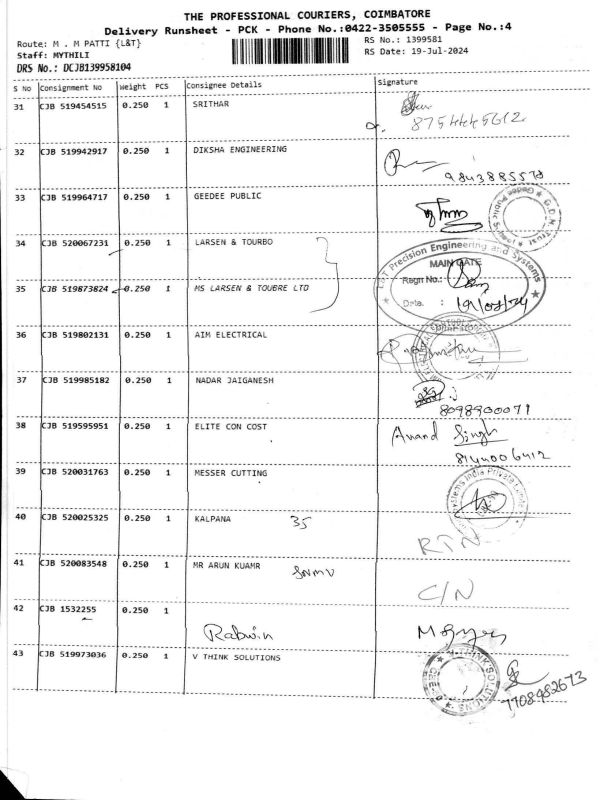 THE PROFESSIONAL COURIERS, COIMBATORE
Delivery Runsheet - PCK - Phone No.:0422-3505555 - Page No.:4
Route: M . M PATTI {L&T}
RS No.: 1399581
Staff: MYTHILI
RS Date: 19-Jul-2024
DRS No.: DCJB139958104
S No Consignment No Weight PCS Consignee Details Signature
31 CJB 519454515 0.250 1 SRITHAR
32 CJB 519942917 0.250 1 DIKSHA ENGINEERING
9843885578
33 CJB 519964717 0.250 1 GEEDEE PUBLIC
G.D.N. Trust
Geedee Public School
34 CJB 520067231 0.250 1 LARSEN & TOURBO
L&T Precision Engineering and Systems
MAIN GATE
Regn No.:
35 CJB 519873824 0.250 1 MS LARSEN & TOUBRE LTD
Date. :
36 CJB 519802131 0.250 1 AIM ELECTRICAL
37 CJB 519985182 0.250 1 NADAR JAIGANESH
8098900071
38 CJB 519595951 0.250 1 ELITE CON COST
Anand Singh
8144006412
39 CJB 520031763 0.250 1 MESSER CUTTING
Systems India Private Limited
40 CJB 520025325 0.250 1 KALPANA 35
RTN
41 CJB 520083548 0.250 1 MR ARUN KUAMR
C/N
42 CJB 1532255 0.250 1
Rabwin
43 CJB 519973036 0.250 1 V THINK SOLUTIONS
V-THINK SOLUTIONS
7708982673